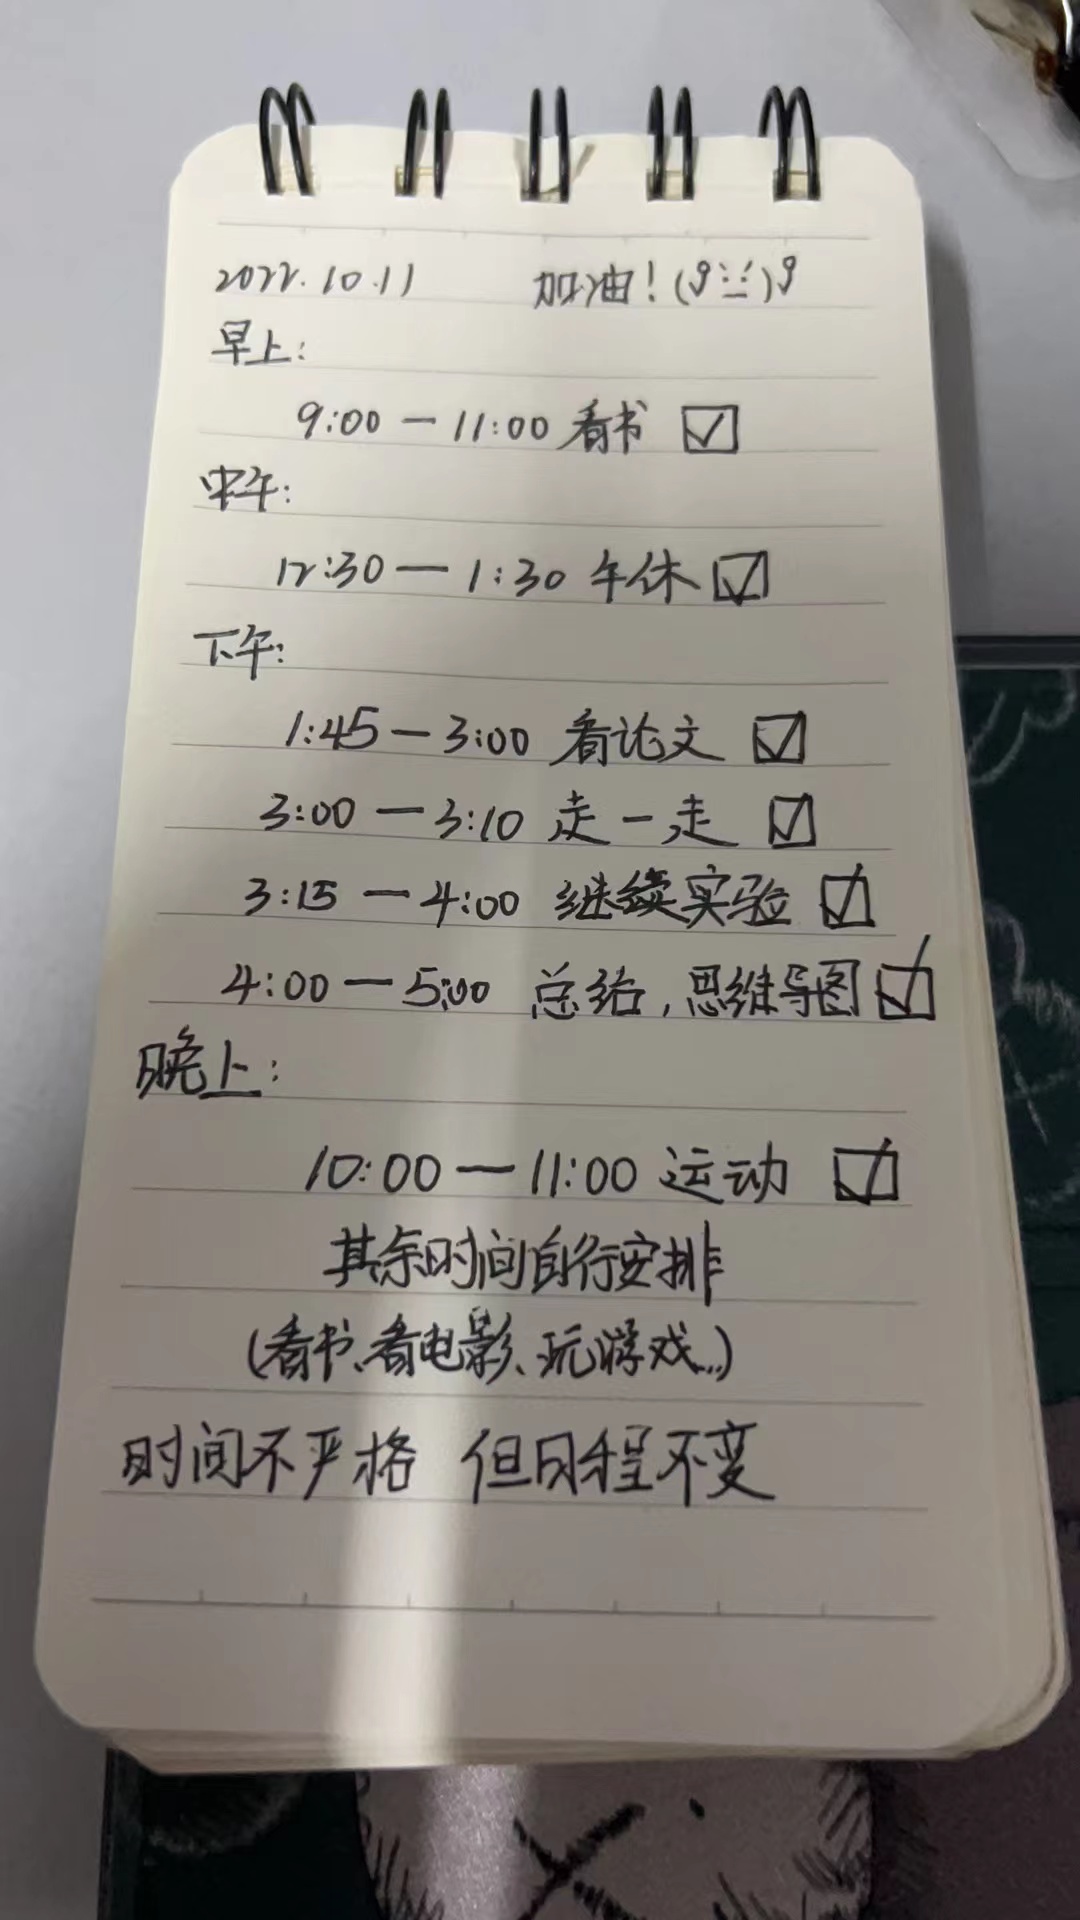 2022.10.11 加油！(ง •̀_•́)ง
早上：
9:00 — 11:00 看书 ☑
中午：
12:30 — 1:30 午休 ☑
下午：
1:45 — 3:00 看论文 ☑
3:00 — 3:10 走一走 ☑
3:15 — 4:00 继续实验 ☑
4:00 — 5:00 总结，思维导图 ☑
晚上：
10:00 — 11:00 运动 ☑
其余时间自行安排
(看书、看电影、玩游戏...)
时间不严格 但日程不变